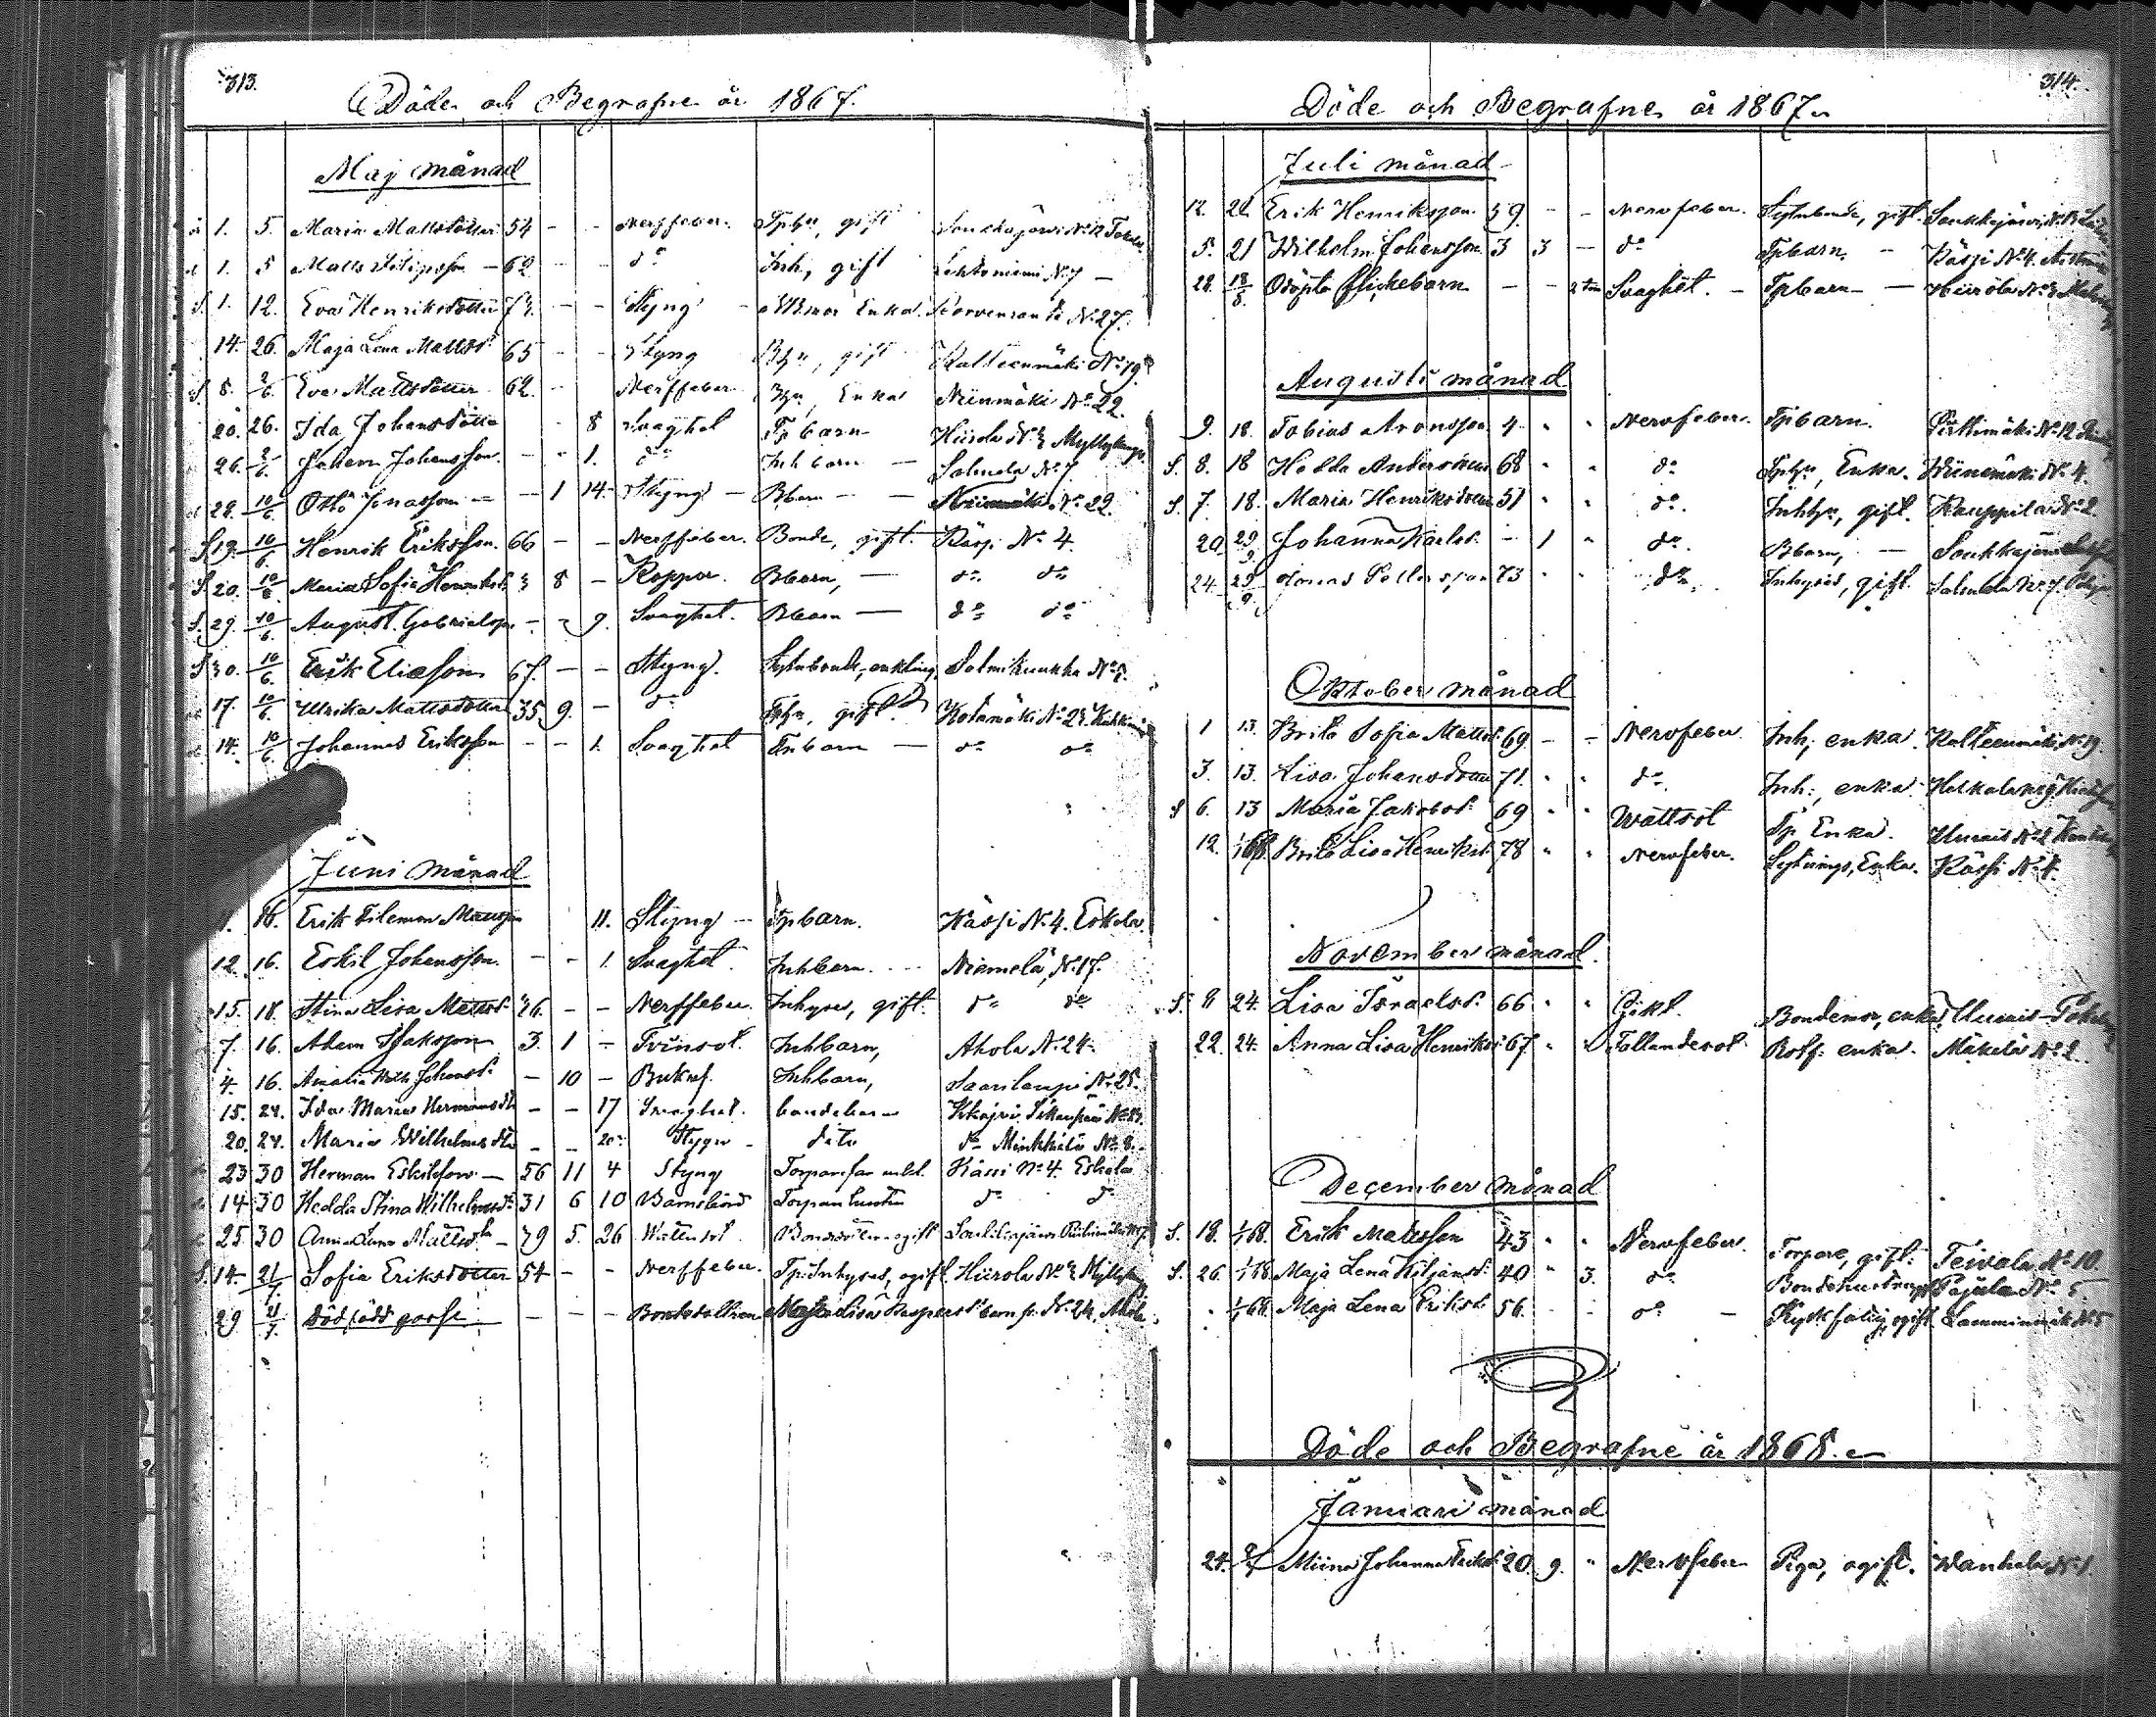 313.
Döde och Begrafne år 1867.
Maj månad
1. 5. Maria Mattsdotter 54 - - Nerffeber. Tphu, gift Soukkajärvi N:o 12
1. 5 Matts Filipsson - 62 - - do Inh, gift Lehtoniemi N:o 7 -
S. 1. 12. Eva Henriksdotter 73. - - Styng Enka. Korvenranta N:o 27.
14. 26. Maja Lena Mattsd. 65 - - Styng Bhu, gift Kalteenmäki N:o 19
S. 8. 2/6. Eva Mattsdotter 62. - Nerffeber Bhu, Enka Niinmäki N:o 22.
20. 26. Ida Johansdotter 8 Svaghet Tpbarn Hiirola N:o 3 Myllykangas
26. 2/6. Johan Johansson. - - 1. do Inhbarn - Salmela N:o 7.
28. 10/6. Otto Jonasson - - 1 14 - Styng - Bbarn - - N:o 22.
S. 19. 10/6. Henrik Eriksson. 66 - - Nerffeber. Bonde, gift Kässi N:o 4.
S. 20. 10/6. Maria Sofia Henriksd. 3 8 - Koppor. Bbarn, - do do
S. 29. 10/6. August Gabrielsson - - 9. Svaghet. Bbarn - do do
S. 30. 10/6. Erik Eliasson 67. - - Styng. Sytnbonde, enkling,
17. 10/6. Ulrika Mattsdotter 35 9. - do Tphu, gift. Kotamäki N:o 23.
14. 10/6. Johannes Eriksson - - 1. Svaghet Tpbarn - do do
Juni månad
16. Erik Fileman Mattsson 11. Styng - Tpbarn. Kässi N:o 4. Eskela
12. 16. Eskil Johansson. - - 1. Svaghet. Inhbarn. Niemelä, N:o 17.
15. 18. Stina Lisa Mattsd. 46 - - Nerffeber Inhyses, gift. do do
7. 16. Adam Isaksson 3. 1 - Tvinsot. Inhbarn, Ahola N:o 24
4. 16. Amalia Wilh. Johansd. - 10 - Bukref. Inhbarn, Saarilampi N:o 25.
15. 24. Ida Maria Hermansdtr - - 17 Svaghet. bondebarn
20. 24. Maria Wilhelmsdtr - - 20 Styng - dito do Minkkilä N:o 8.
23 30 Herman Eskilsson - 56 11 4 Styng Torparefar enkl. Kässi N:o 4. Eskela
14 30 Hedda Stina Wilhelmsdr 31 6 10 Barnsbörd Torparehustru do do
25. 30 Anna Lena Mattsdtr - 79 5. 26 Wattusot
S. 14 - 21/7. Sofia Eriksdotter 54 - - Nerffeber. Tp:Inhyses, ogift. Hiirola N:o 3 Myllykangas
29 21/7. Dödfödt gosse - - - - Bondedottren Maja Lisa Kaspersd. barn fr. N:o 24,
314.
Döde och Begrafne år 1867
Juli månad
12. 21 Erik Henriksson. 59. - - Nervfeber. Sytnbonde, gift. Soukkajärvi,
5. 21 Wilhelm Johansson. 3 3 - do Tpbarn. - Kässi N:o 4.
28. 18/8. Odöpta flickebarn - - 2 tim Svaghet. - Tpbarn - - Hiirola N:o 3
Augusti månad
9. 18. Tobias Aronsson 4 " " Nervfeber. Tpbarn. Pirttimäki N:o 12
S. 8. 18 Hedda Andersdotter 68 " " do Enka. Niinimäki N:o 4.
S. 7. 18. Maria Henriksdotter 51 " " do. Inhhu, gift. Kauppila N:o 2
20. 29/9. Johanna Karlsd. - 1 " do. Bbarn, - Soukkajärvi
24. 29/9. Jonas Pettersson 73 " " do. Inhyses, gift. Salmela N:o 7.
Oktober månad
1 13. Brita Sofia Mattsd. 69 - - Nervfeber. Inh; enka. Kalteenmäki N:o 19.
3. 13. Lisa Johansdotter 71. " " do Inh:, enka.
S 6. 13 Maria Jakobsd. 69 " " Wattsot Tp Enka. Uurais N:o 2
12. 1/68. Brita Lisa Henriksd. 78 " " Nervfeber. Sytnings, Enka. Kässi N:o 4.
November månad.
S. 8 24. Lisa Israelsd. 66 " " Gikt. Bondemor, enka, Uurais
22. 24. Anna Lisa Henriksd. 67. " " Fallandesot. Rotf: enka. Mäkelä N:o 2.
December månad
S. 18. 1/68. Erik Matsson 43 " " Nervfeber. Torpare, gift: Teivola N:o 10.
S. 26. 1/68 Maja Lena Kiljansd. 40 " 3. do Bondehustru, gift Pajula N:o 5.
1/68 Maja Lena Eriksd. 56 - - do - Kyrkfattig, ogift Lamminmäki N:o 5
Döde och Begrafne år 1868.
Januari månad
24. Miina Johanna Eriksd. 20. 9. " Nervfeber Piga, ogift. Wanhala N:o 1.